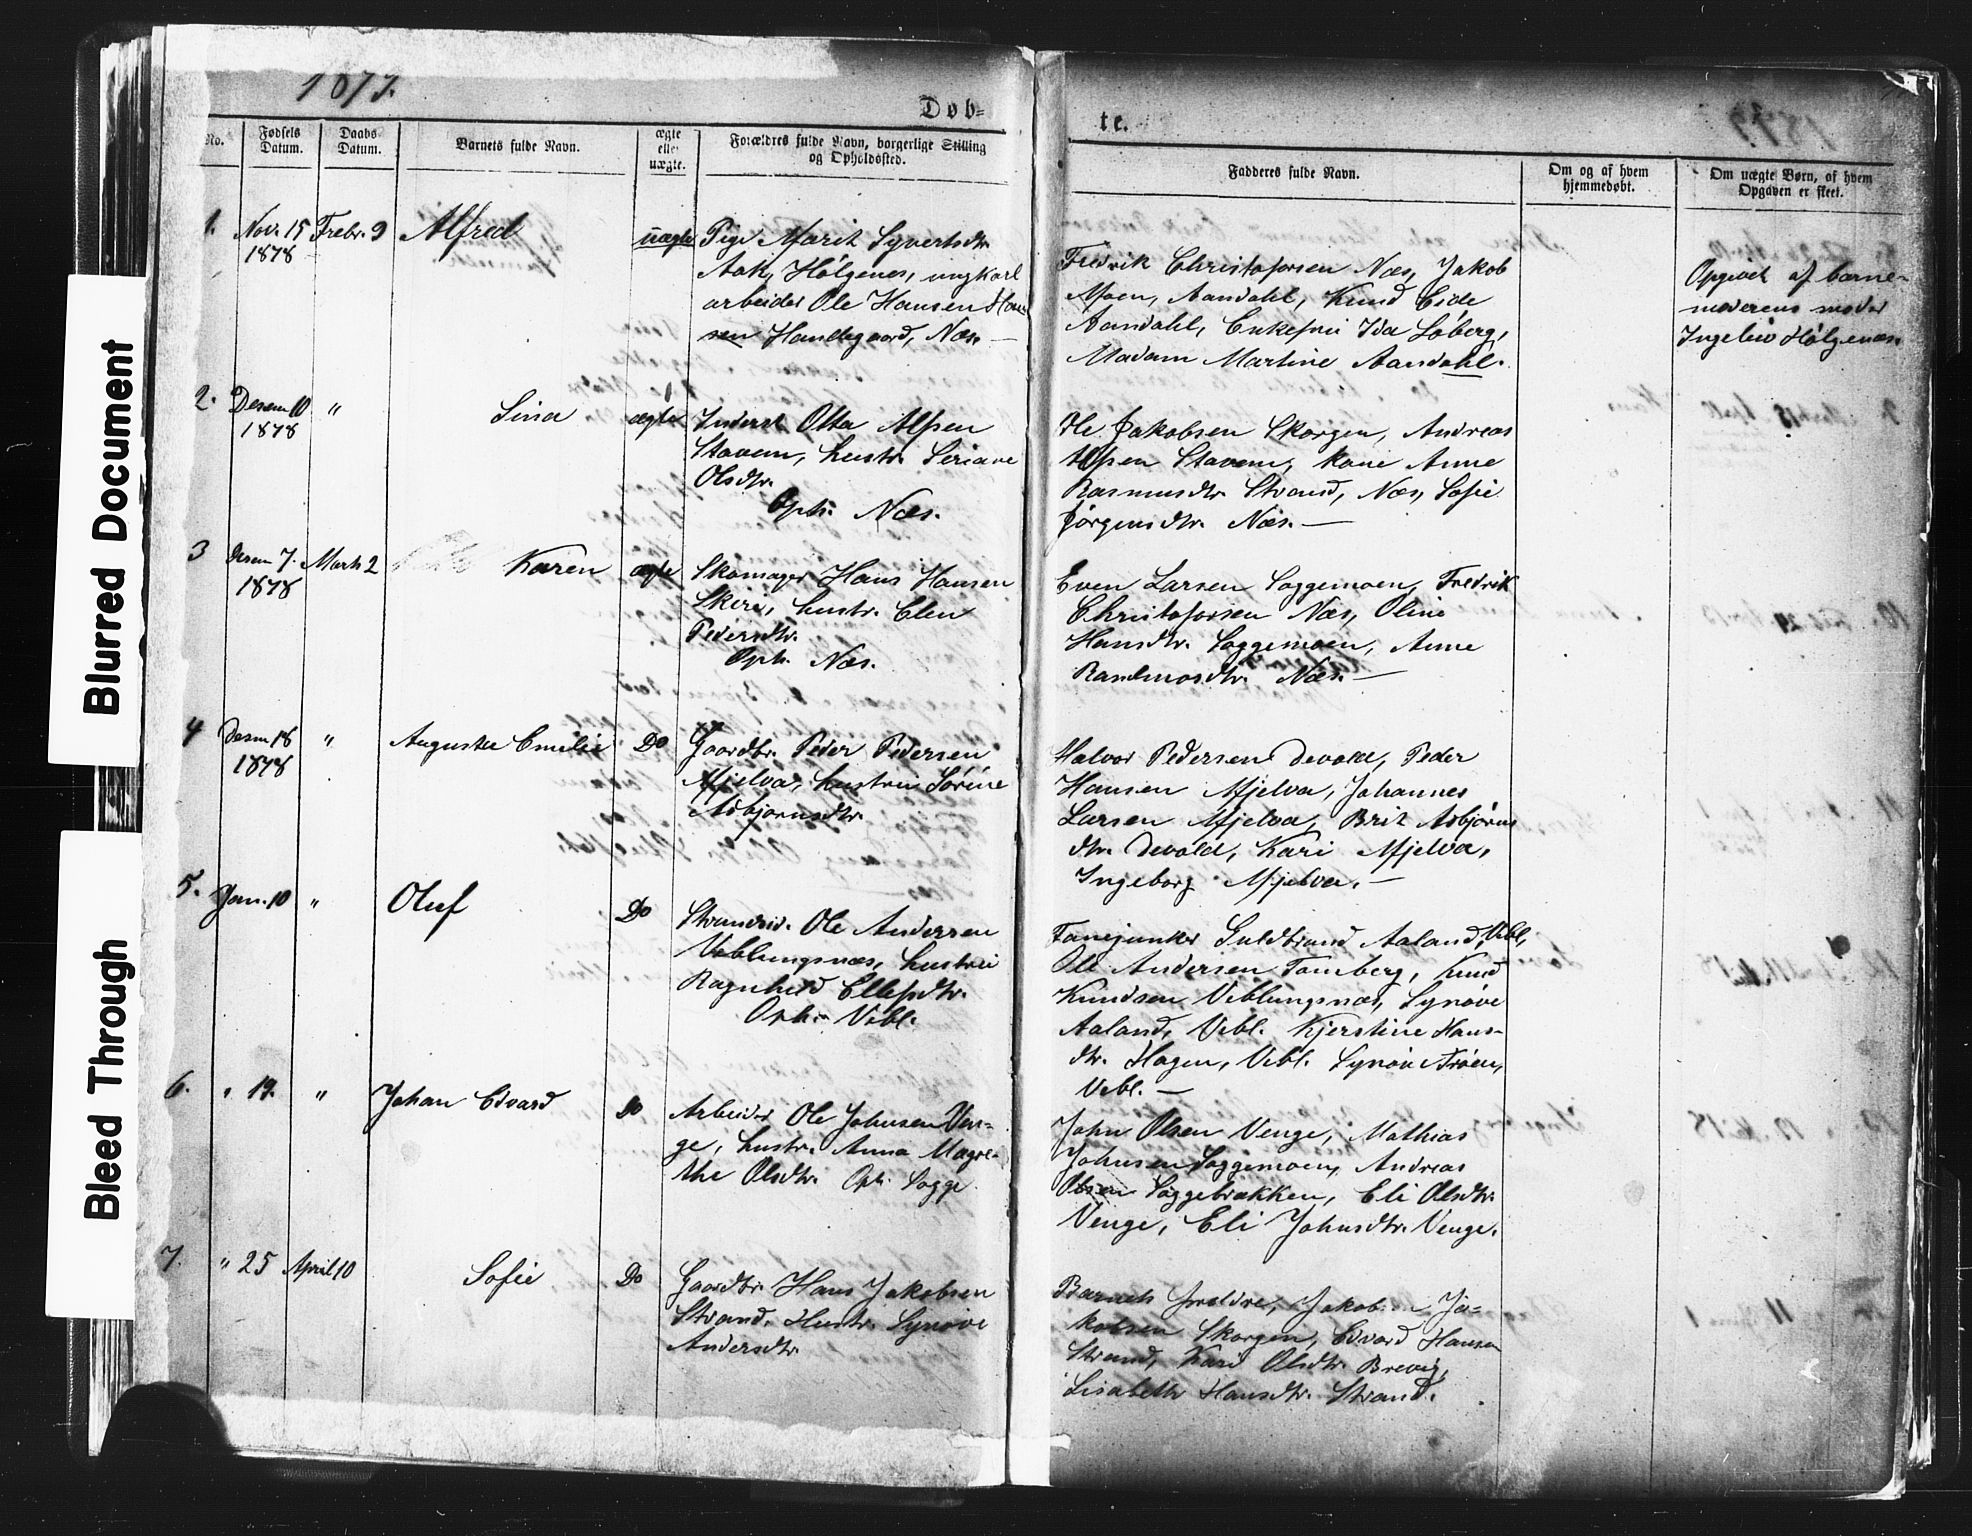 Blurred Document
Bleed Through
1879.
Døb=
te.
No.
Fødsels Datum.
Daabs Datum.
Barnets fulde Navn.
ægte eller uægte.
Forældres fulde Navn, borgerlige Stilling og Opholdssted.
Fadderes fulde Navn.
Om og af hvem hjemmedøbt.
Om uægte Børn, af hvem Opgaven er skeet.
1. Novr. 15 1878 Febr. 9 Alfred uægte
Pige Marit Syvertsdtr.
Aak, Hølgenes, ungkarl
arbeider Ole Hansen Han-
sen Handegaard, Næs. —
Fredrik Christofersen Næs, Jakob
Moen, Aandahl, Knud Eide
Aandahl, Enkefru Ida Løberg,
Madam Martine Aandahl.
Opgivet af barne-
moderens moder
Ingebiør Hølgenæs.
2. Desem 10 1878 " Sina ægte
Inderst Otto Alfsen
Stavem, hustr. Seriane
Olsdtr.
Oph. Næs.
Ole Jakobsen Skorgen, Andreas
Alfsen Stavem, kone Anne
Rasmusdtr. Strand, Næs, Sofie
Jörgensdtr. Næs. —
3 Desem 7. 1878 Marts 2 Karen ægte
Skomager Hans Hansen
Skiri, hustr. Elen
Pedersdtr.
Oph. Næs.
Even Larsen Soggemoen, Fredrik
Christofersen Næs, Oline
Hansdtr. Soggemoen, Anne
Næs. —
4 Desm 18 1878 " Augusta Emilie Do
Gaardbr. Peder Pedersen
Mjelva, hustru Sørine
Asbjørnsdtr.
Halvor Pedersen Devold, Peder
Hansen Mjelva, Johannes
Larsen Mjelva, Brit Asbjørns
dtr. Devold, Kari Mjelva,
Ingeborg Mjelva. —
5. Jan. 10 " Oluf Do
Strandsid. Ole Andersen
Veblungsnæs, hustru
Ragnhild Ellefsdtr.
Oph. Vebl.
Fanejunker Guldbrand Aaland, Vebl,
Ole Andersen Tomberg, Knud
Knudsen Veblungsnæs, Synøve
Aaland, Vebl. Kjerstine Hans-
dtr. Hagen, Vebl. Synøve Trøen,
Vebl. —
6. " 19. " Johan Edvard Do
Arbeider Ole Johnsen Ven-
ge, hustr. Anna Magre-
the Olsdtr. Oph. Sogge
John Olsen Venge, Mathias
Johnsen Soggemoen, Andreas
Olsen Soggebrækken, Eli Olsdtr.
Venge, Eli Johnsdtr. Venge.
7. " 25 April 10 Sofie Do
Gaardbr. Hans Jakobsen
Strand, Hustr. Synøve
Andersdtr.
Barnets foreldre, Jakob Ja-
kobsen Skorgen, Edvard Hansen
Strand, Kari Olsdtr. Brevig,
Lisabeth Hansdtr. Strand.